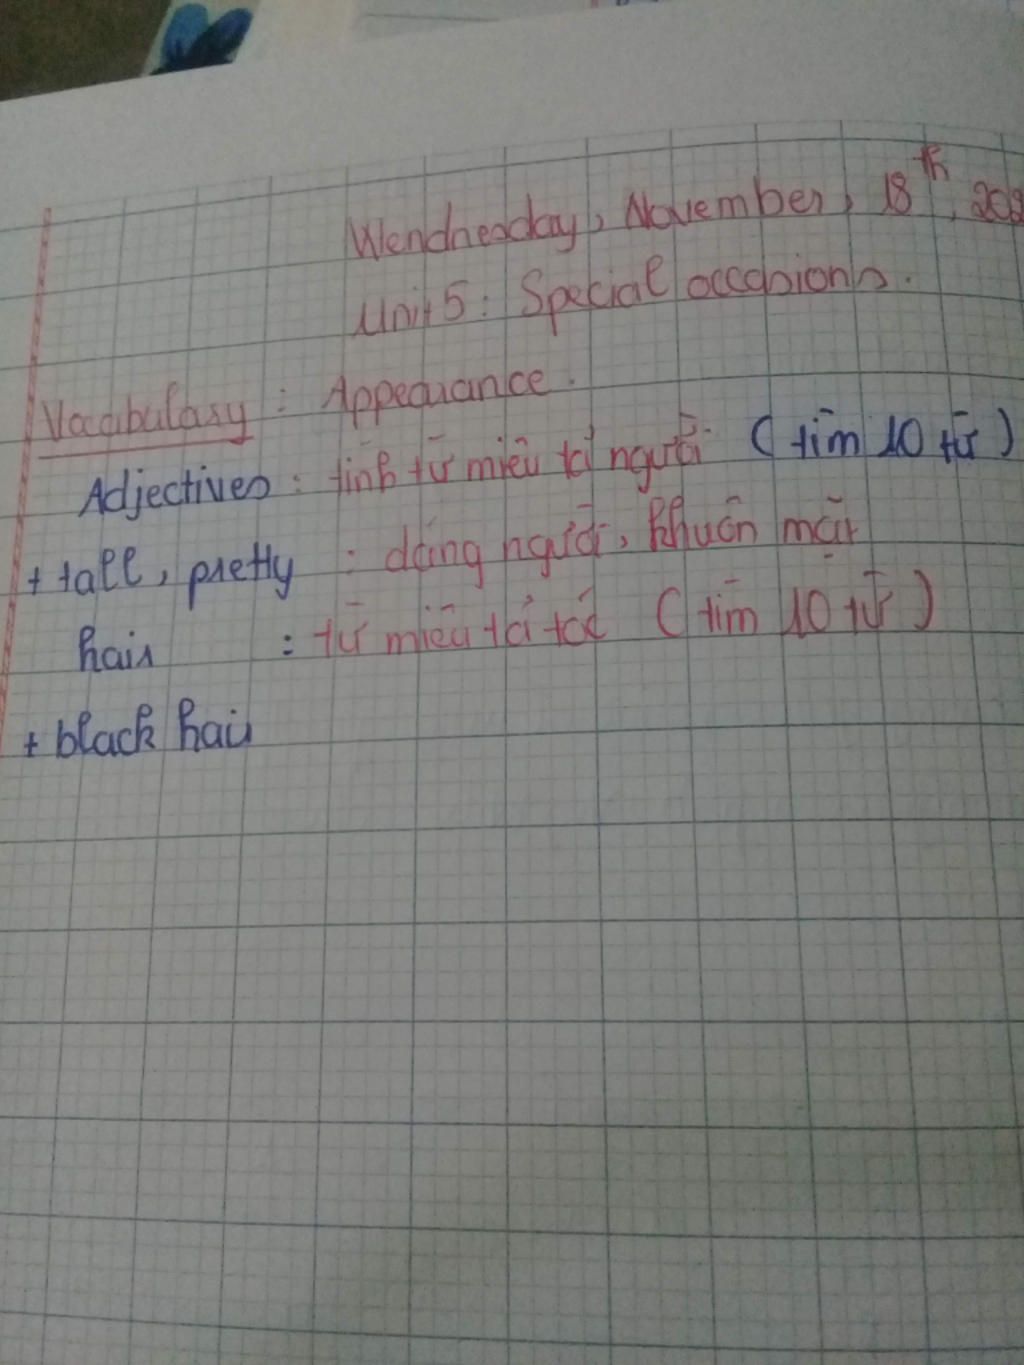 Wendnesday, November, 18th, 202
Unit 5: Special occasions.
Vocabulary: Appearance.
Adjectives: tính từ miêu tả người (tìm 10 từ)
+ tall, pretty : dáng người, khuôn mặt
hair : từ miêu tả tóc (tìm 10 từ)
+ black hair